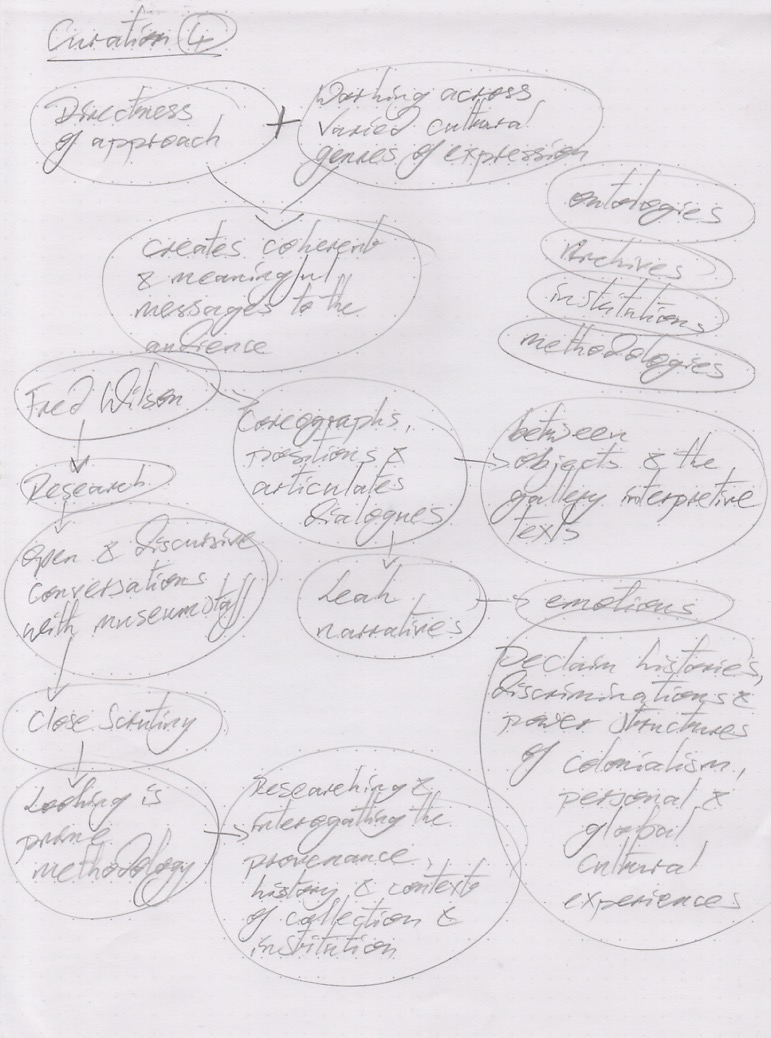 Curation 4
Directness
of approach
+
Working across
varied cultural
genres of expression
creates coherent
& meaningful
messages to the
audience
ontologies
Archives
institutions
methodologies
Fred Wilson
Research
open & discursive
conversations
with museum staff
Close Scrutiny
Looking is
prime
methodology
Researching &
interogating the
provenance,
history & contexts
of collection &
institution
Coreographs,
positions &
articulates
dialogues
between
objects & the
gallery interpretive
texts
Leak
narratives
emotions
histories,
discriminations &
power structures
of colonialism,
personal &
global
cultural
experiences